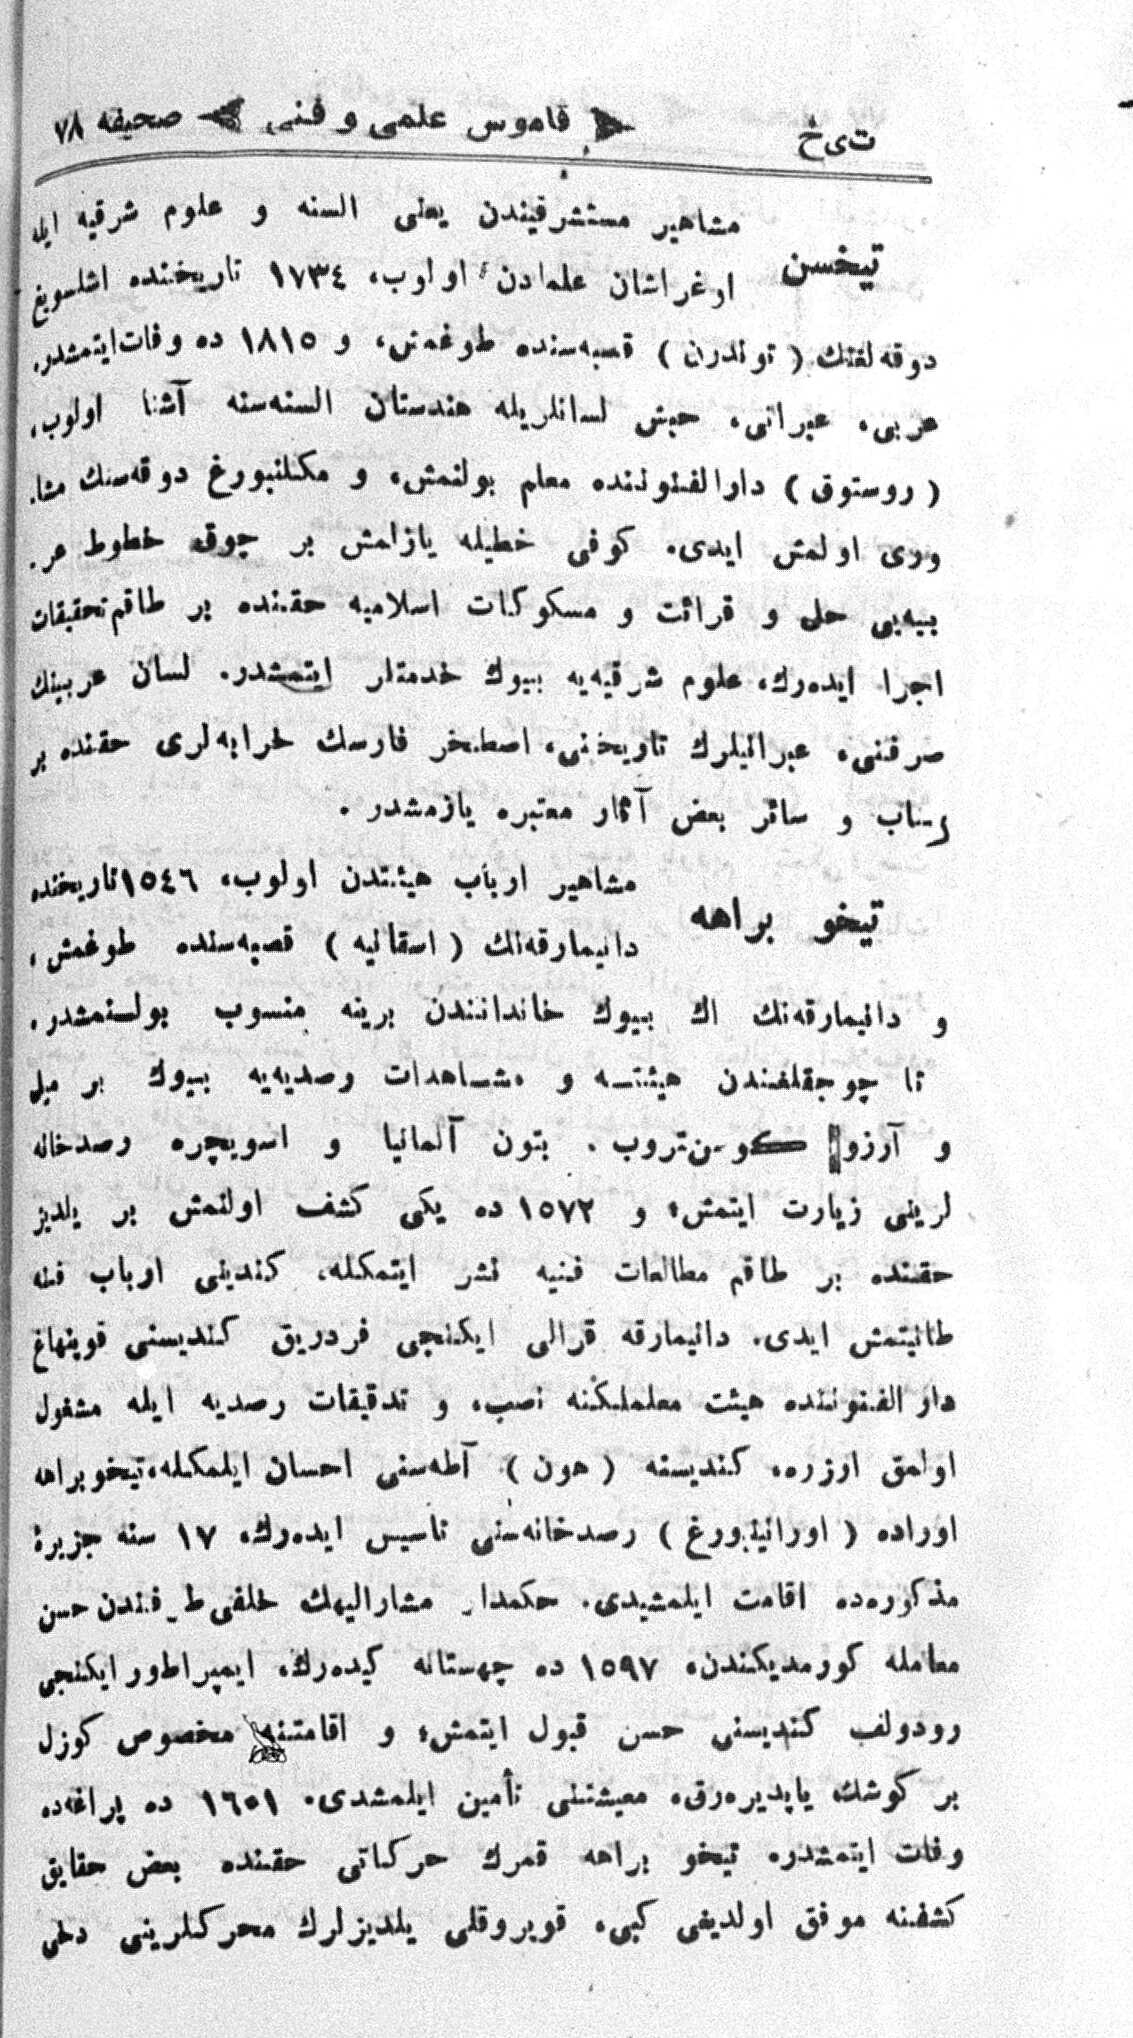 ت ی خ
قاموس علمی و فنی
صحیفه ٧٨
تیخسن
مشاهیر مستشرقیندن یعنی السنه و علوم شرقیه ایله
اوغراشان علمادن اولوب، ١٧٣٤ تاریخنده اشلسویغ
دوقه‌لغنك ( توندرن ) قصبه‌سنده طوغمش، و ١٨١٥ ده وفات ایتمشدر.
عربی، عبرانی، حبش لسانلریله هندستان السنه‌سنه آشنا اولوب،
( روستوق ) دارالفنوننده معلم بولنمش، و مكلنبورغ دوقه‌سنك مشا.
وری اولمش ایدی. كوفی خطیله یازلمش بر چوق خطوط عر.
بیه‌یی حل و قرائت و مسكوكات اسلامیه حقنده بر طاقم تحقیقات
اجرا ایده‌رك، علوم شرقیه‌یه بیوك خدمتلر ایتمشدر. لسان عربینك
صرفنی، عبرانیلرك تاریخنی، اصطخر فارسك خرابه‌لری حقنده بر
كتاب و سائر بعض آثار معتبره یازمشدر .
تیخو براهه
مشاهیر ارباب هیئتدن اولوب، ١٥٤٦ تاریخنده
دانیمارقه‌نك ( اسقانیه ) قصبه‌سنده طوغمش،
و دانیمارقه‌نك اك بیوك خاندانندن برینه منسوب بولنمشدر.
تا چوجقلغندن هیئته و مشاهدات رصدیه‌یه بیوك بر میل
و آرزو كوستروب . بتون آلمانیا و اسویچره رصدخانه
لرینی زیارت ایتمش، و ١٥٧٢ ده یكی كشف اولنمش بر یلدیز
حقنده بر طاقم مطالعات فنیه نشر ایتمكله، كندینی ارباب فنه
طانیتمش ایدی. دانیمارقه قرالی ایكنجی فردریق كندیسنی قوپنهاغ
دار الفنوننده هیئت معلملكنه نصب، و تدقیقات رصدیه ایله مشغول
اولمق اوزره، كندیسنه ( هون ) آطه‌سنی احسان ایلمكله، تیخو براهه
اوراده ( اورانینبورغ ) رصدخانه‌سنی تأسیس ایده‌رك، ١٧ سنه جزیرۀ
مذكوره‌ده اقامت ایلمشیدی. حكمدار مشارالیهك خلفی طرفندن حسن
معامله كورمدیكندن، ١٥٩٧ ده چهستانه كیده‌رك، ایمپراطور ایكنجی
رودولف كندیسنی حسن قبول ایتمش، و اقامتنه مخصوص كوزل
بر كوشك یاپدیره‌رق، معیشتنی تأمین ایلمشدی. ١٦٠١ ده پراغه‌ده
وفات ایتمشدر. تیخو براهه قمرك حركاتی حقنده بعض حقایق
كشفنه موفق اولدیغی كبی، قویروقلی یلدیزلرك محركلرینی دخی